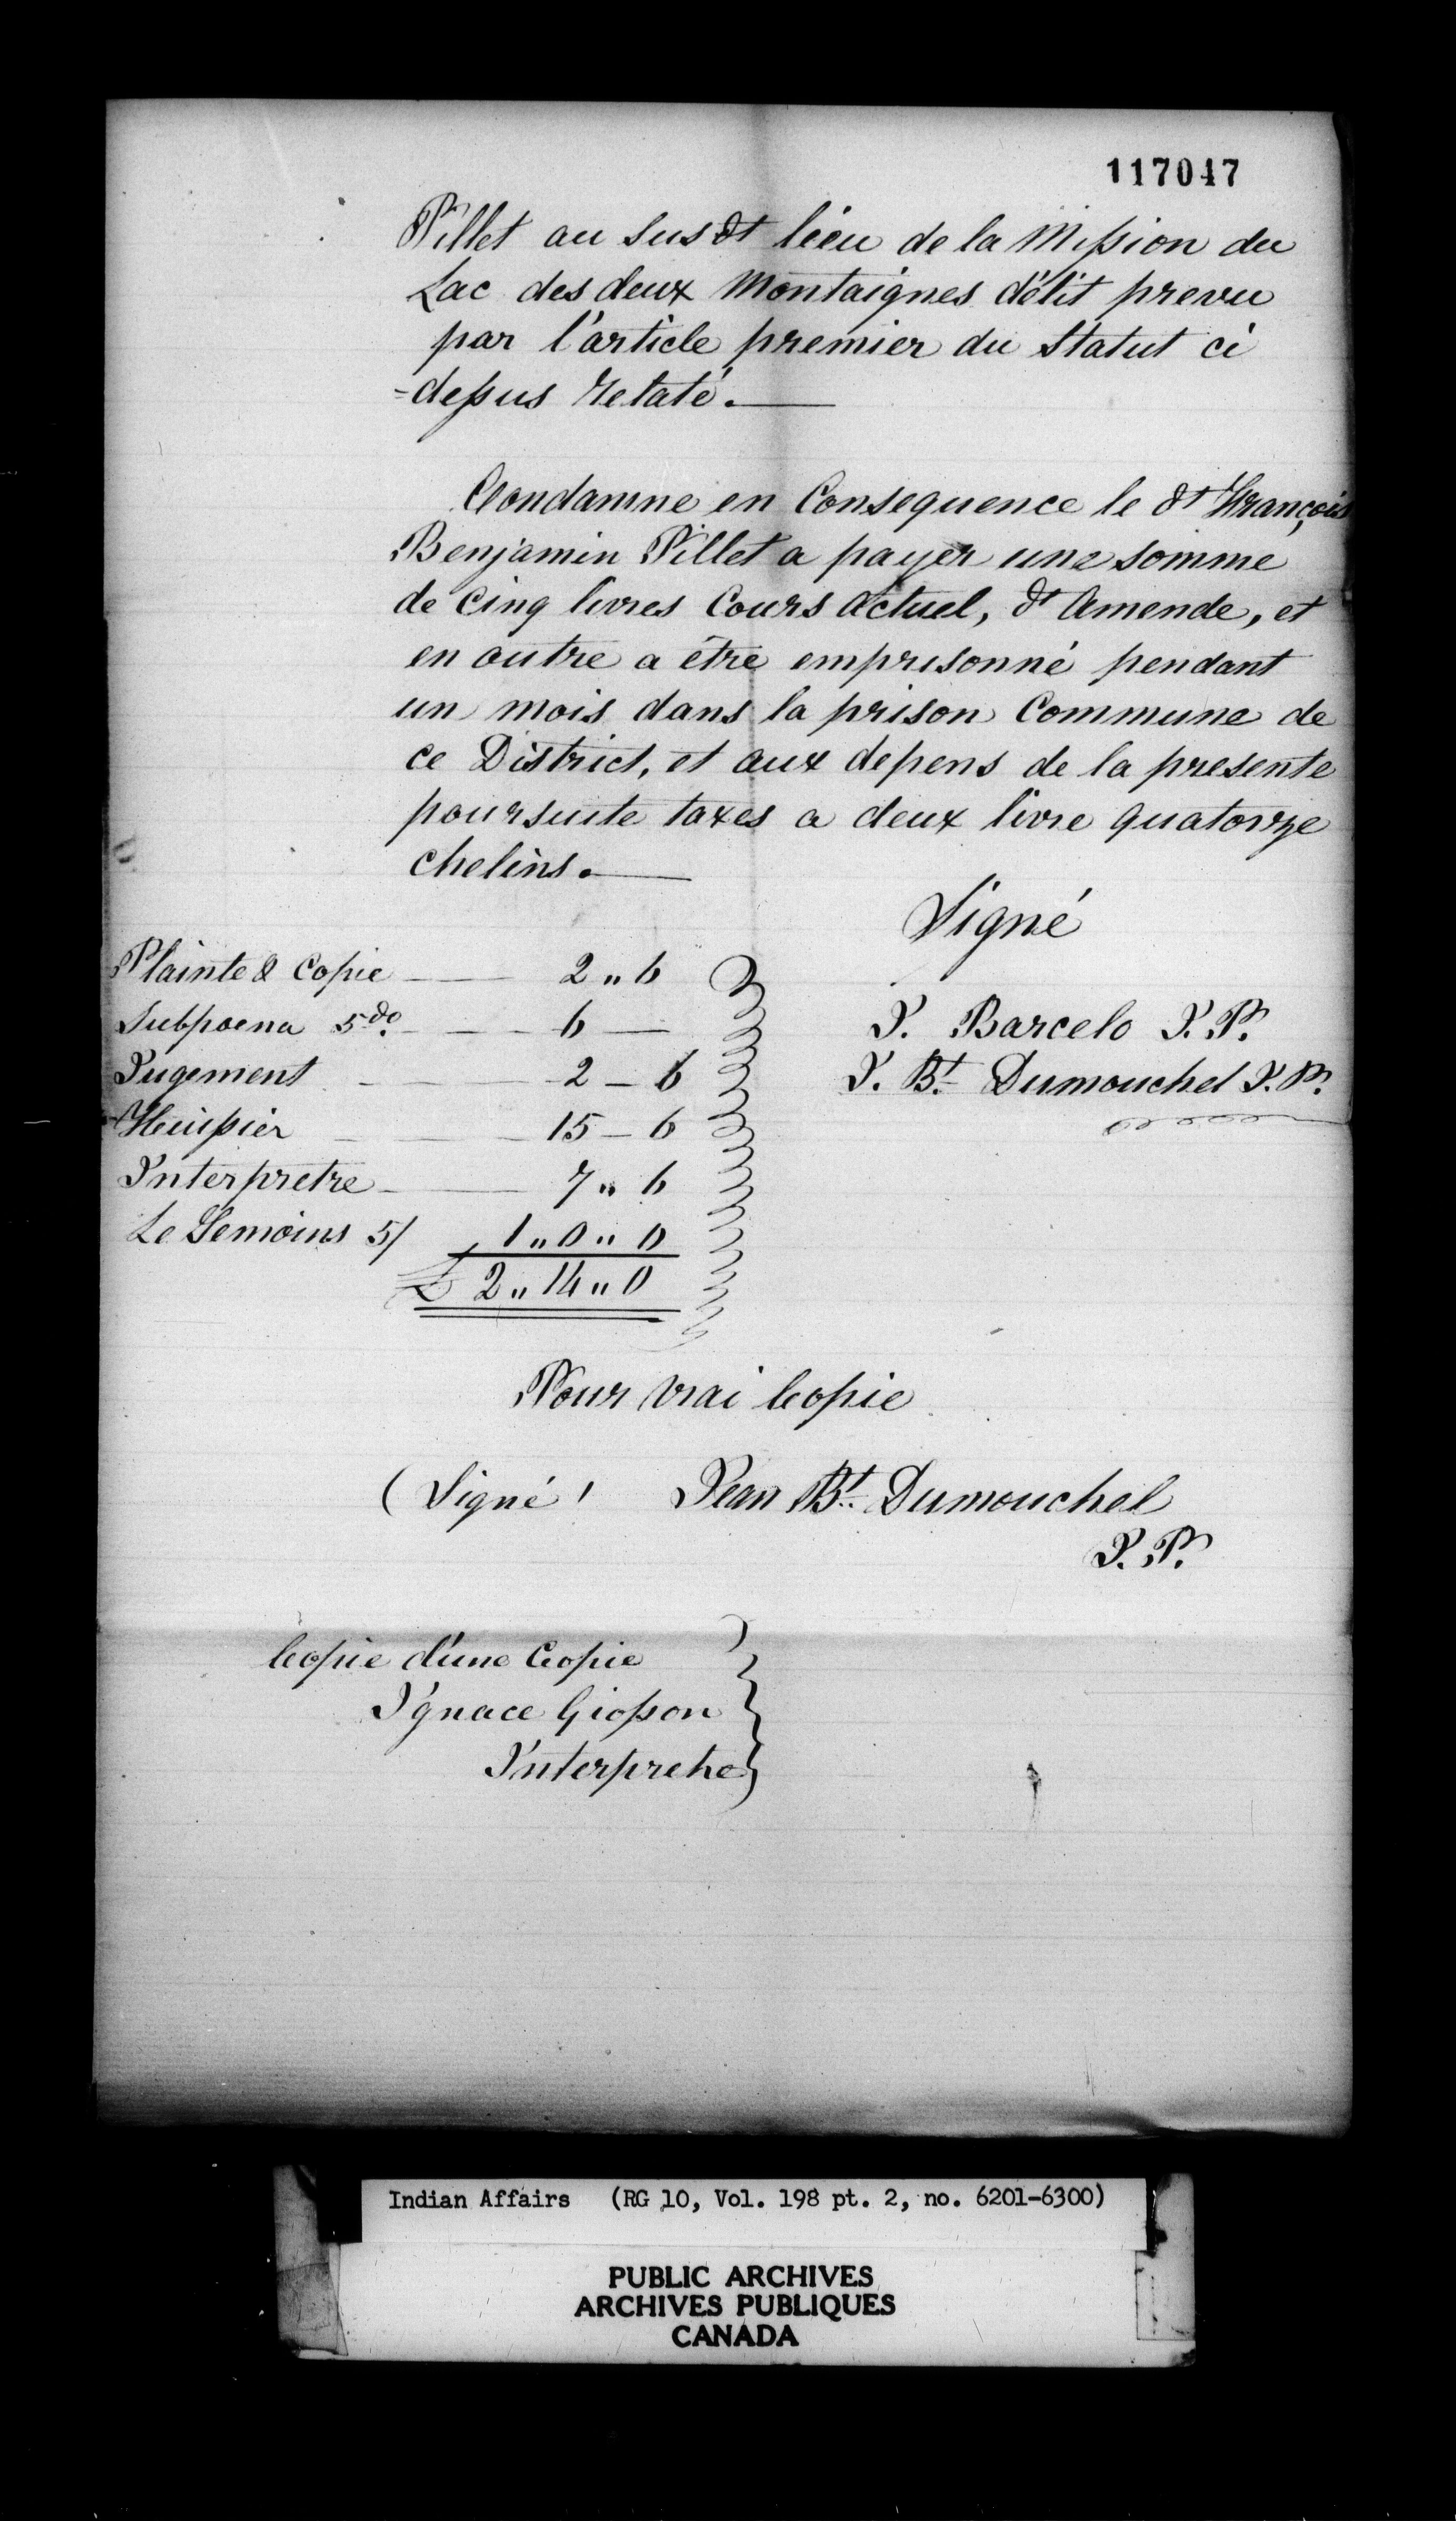 117047
Pillet au susdt lieu de la Mission du
Lac des deux Montaignes délit prevu
par l'article premier du Statut ci
=dessus relaté.
Condamne en Consequence le dt François
Benjamin Pillet a payer une somme
de Cinq livres Cours actuel, dt Amende, et
en outre a être emprisonné pendant
un mois dans la prison Commune de
ce District, et aux depens de la presente
poursuite taxes a deux livre quatorze
chelins.
Signé
Plainte & Copie 2 " 6
Subpoena 5 do 6 —
J. Barcelo J.P.
Jugement 2 – 6
J. Bt. Dumouchel J.P.
Huissier 15 – 6
Interpretre 7 " 6
Le Temoins 5/ 1 " 0 " 0
£ 2 " 14 " 0
Pour vrai Copie
(Signé) Jean Bt. Dumouchel
J.P.
Copie d'une Copie
Ignace Giasson
Interprete
Indian Affairs (RG 10, Vol. 198 pt. 2, no. 6201-6300)
PUBLIC ARCHIVES
ARCHIVES PUBLIQUES
CANADA